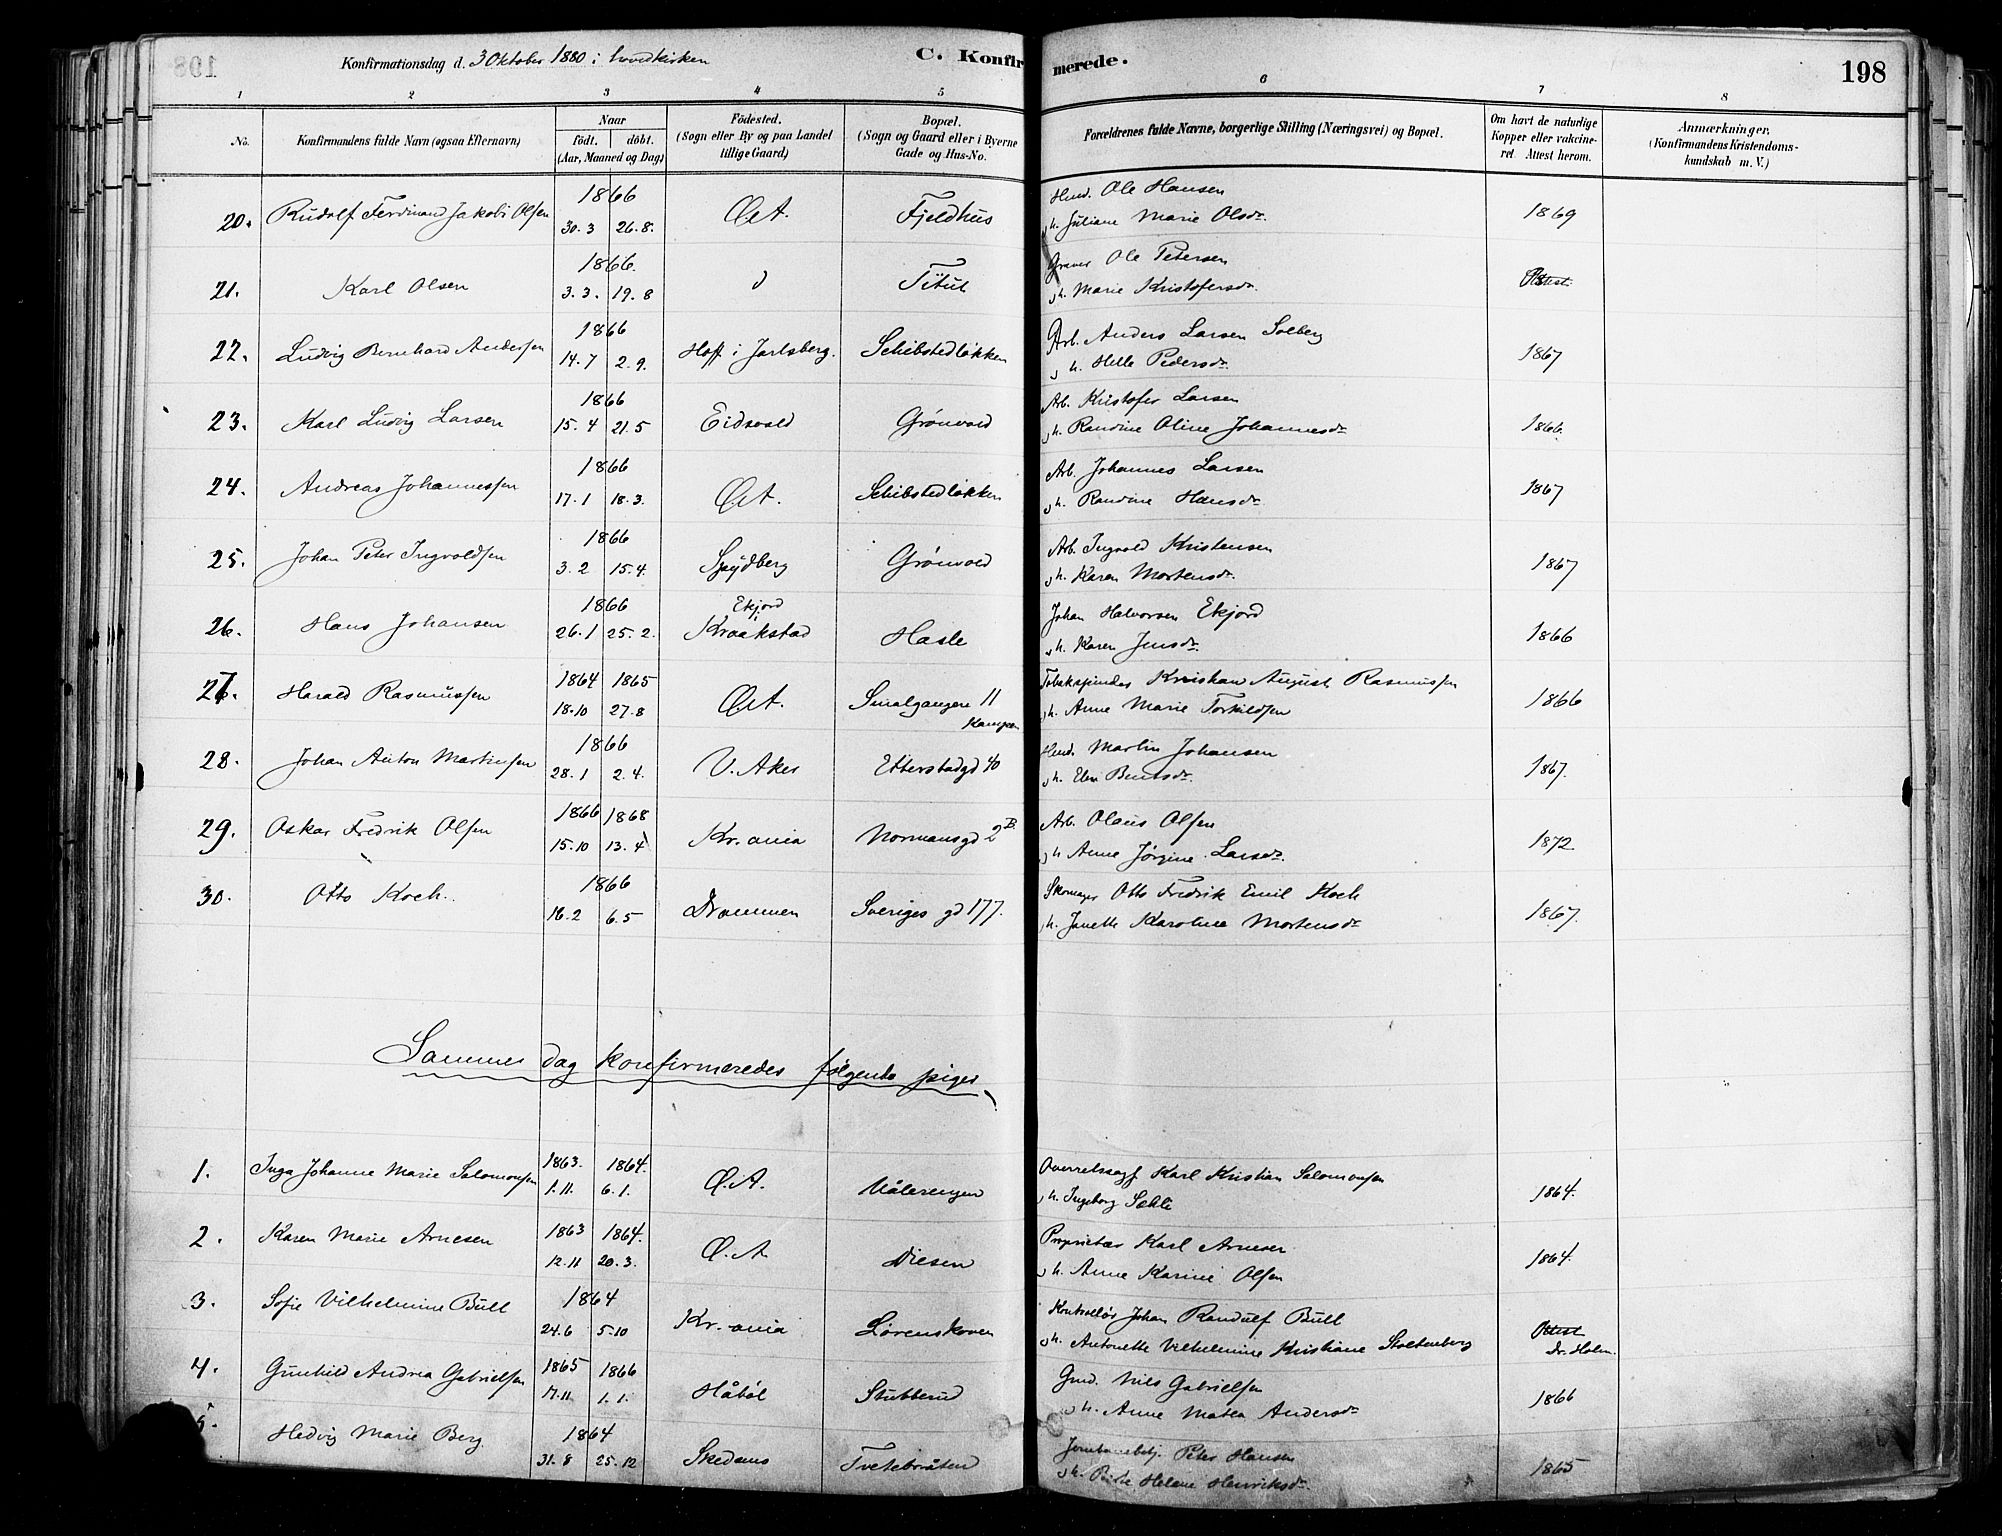 Konfirmationsdag d. 3 Oktober 1880 i hovedkirken
C. Konfirmerede.
198
1 2 3 4 5 6 7 8
No.
Konfirmandens fulde Navn (ogsaa Efternavn)
Naar
födt. döbt.
(Aar, Maaned og Dag)
Födested.
(Sogn eller By og paa Landet
tillige Gaard)
Bopæl.
(Sogn og Gaard eller i Byerne
Gade og Hus-No.
Forældrenes fulde Navne, borgerlige Stilling (Næringsvei) og Bopæl.
Om havt de naturlige
Kopper eller vakcine-
ret Attest herom.
Anmærkninger,
(Konfirmandens Kristendoms-
kundskab m. V.)
20. Rudolf Ferdinand Jakob Olsen 1866 30.3 26.8. Ø.A. Fjeldhus Ole Hansen 1869
h. Juliane Marie Olsdr.
21. Karl Olsen 1866. 3.3. 19.8 Graver Ole Petersen Attest
h. Marie Kristofersdr.
22. Ludvig Bernhard Andersen 1866 14.7 2.9. Hoff i Jarlsberg. Schibstedløkken Arb. Anders Larsen Solberg 1867
h. Helle Pedersdr.
23. Karl Ludvig Larsen 1866 15.4 21.5 Eidsvold Grønvold Arb. Kristofer Larsen 1866.
h. Randine Oline Johannesdr
24. Andreas Johannessen 1866 17.1 18.3. Ø.A. Schibstedløkken Arb. Johannes Larsen 1867
h. Randine Hansdr.
25. Johan Peter Ingvoldsen 1866 3.2 15.4. Spydberg Grønvold Arb. Ingvold Kristensen 1867
h. Karen Mortensdr.
26. Hans Johansen 1866 26.1 25.2. Ekjord Kraakstad Hasle Johan Halvorsen Ekjord 1866
h. Karen Jensdr.
27. Harald Rasmussen 1864 1865 18.10 27.8 Ø.A. Smalgangen 11 Kampen Tobakspinder Kristian August Rasmussen 1866
h. Anne Marie Torkildsen
28. Johan Anton Martinsen 1866 28.1 2.4. V. Aker Etterstadgd 40 Martin Johansen 1867.
h. Elen Berntsdr.
29. Oskar Fredrik Olsen 1866 1868 15.10 13.4 Kr.ania Normansgd 2 B. Arb. Olaus Olsen 1872
h. Anne Jørgine Larsdr.
30. Otto Koch. 1866 16.2 6.5 Drammen Sveriges gd 177. Skomager Otto Fredrik Emil Koch 1867.
h. Janette Karoline Mortensdr
Sammes dag konfirmeredes følgende piger
1. Inga Johanne Marie Salomonsen 1863. 1864. 1.11. 6.1. Ø.A. Vålerengen Overretssagf Karl Kristian Salomonsen 1864.
h. Ingeborg Sehli
2. Karen Marie Arnesen 1863 1864. 12.11 20.3. Ø.A. Diesen Proprietær Karl Arnesen 1864.
h. Anne Karine Olsen
3. Sofie Vilhelmine Bull 1864 24.6 5.10 Kr.ania Lørenskoven Kontrollør Johan Randulf Bull Attest
h. Antonette Vilhelmine Kristiane Stoltenberg Dr. Holm.
4. Gunhild Andrea Gabrielsen 1865 1866 17.11 1.1. Håbøl Stubberud Gmd. Nils Gabrielsen 1866
h. Anne Matea Andersdr
5. Hedvig Marie Berg 1864 31.8 25.12 Skedsmo Tvetebråten Peter Hansen 1865
h. Helene Henriksdr.